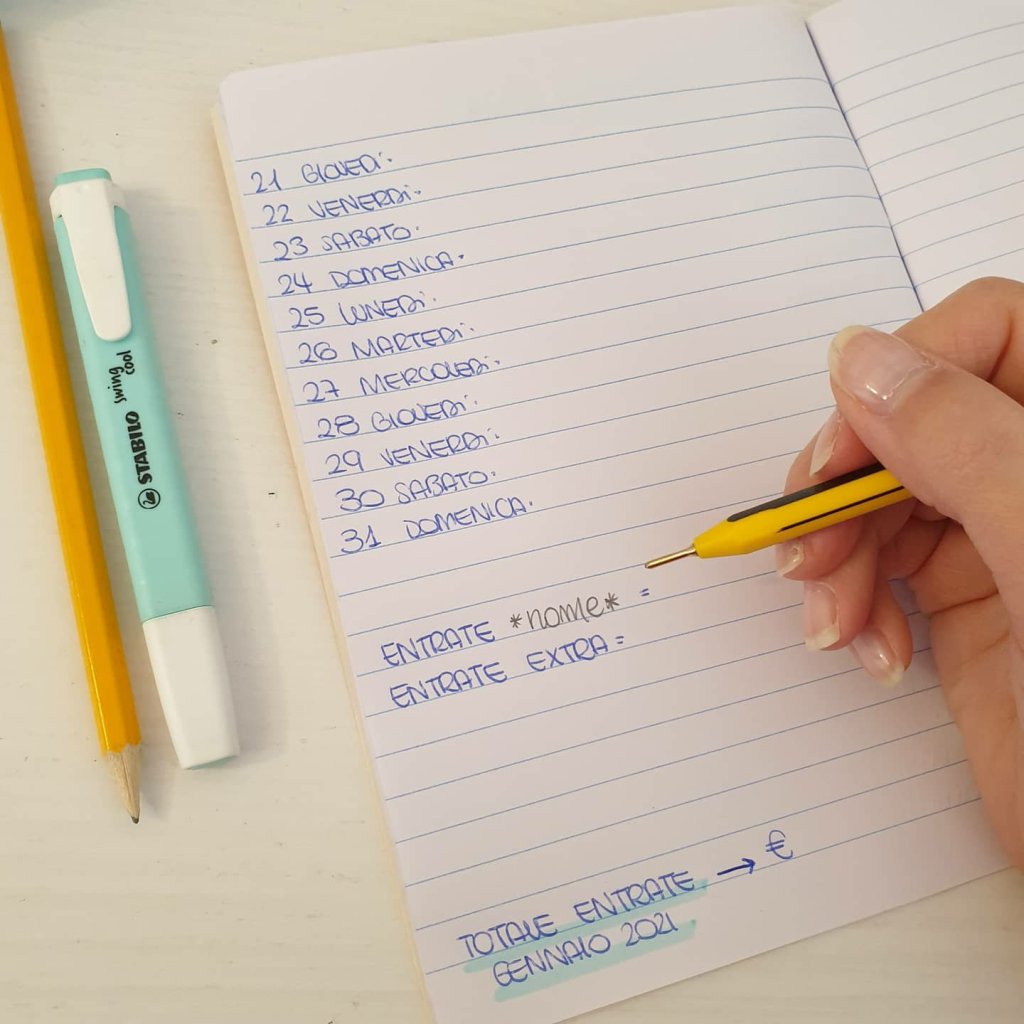 21 GIOVEDì:
22 VENERDì:
23 SABATO:
24 DOMENICA:
25 LUNEDì:
26 MARTEDì:
27 MERCOLEDì:
28 GIOVEDì:
29 VENERDì:
30 SABATO:
31 DOMENICA:
ENTRATE *nome* =
ENTRATE EXTRA =
TOTALE ENTRATE → €
GENNAIO 2021
STABILO swing cool